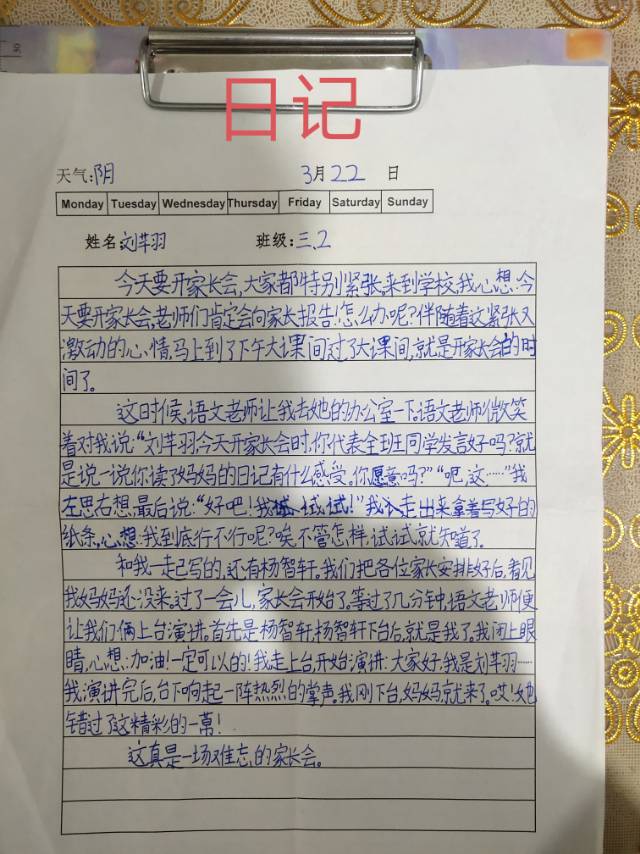 日记
天气:阴 3月22日
Monday Tuesday Wednesday Thursday Friday Saturday Sunday
姓名:刘芈羽 班级:三.2
今天要开家长会,大家都特别紧张,来到学校,我心想:今
天要开家长会,老师们肯定会向家长报告!怎么办呢?伴随着这紧张又
激动的心情,马上到了下午大课间,过了大课间,就是开家长会的时
间了。
这时候,语文老师让我去她的办公室一下。语文老师微笑
着对我说:“刘芈羽今天开家长会时,你代表全班同学发言好吗?就
是说一说你读了妈妈的日记有什么感受。你愿意吗?”“呃,这……”我
左思右想,最后说:“好吧!我试试试!”我走出来拿着写好的
纸条,心想:我到底行不行呢?唉,不管怎样,试试就知道了。
和我一起写的,还有杨智轩。我们把各位家长安排好后,看见
我妈妈还没来。过了一会儿,家长会开始了。等过了几分钟,语文老师便
让我们俩上台演讲。首先是杨智轩,杨智轩下台后,就是我了。我闭上眼
睛,心想:加油!一定可以的!我走上台,开始演讲:大家好,我是刘芈羽……
我演讲完后,台下响起一阵热烈的掌声。我刚下台,妈妈就来了。哎!她
错过了这精彩的一幕!
这真是一场难忘的家长会。